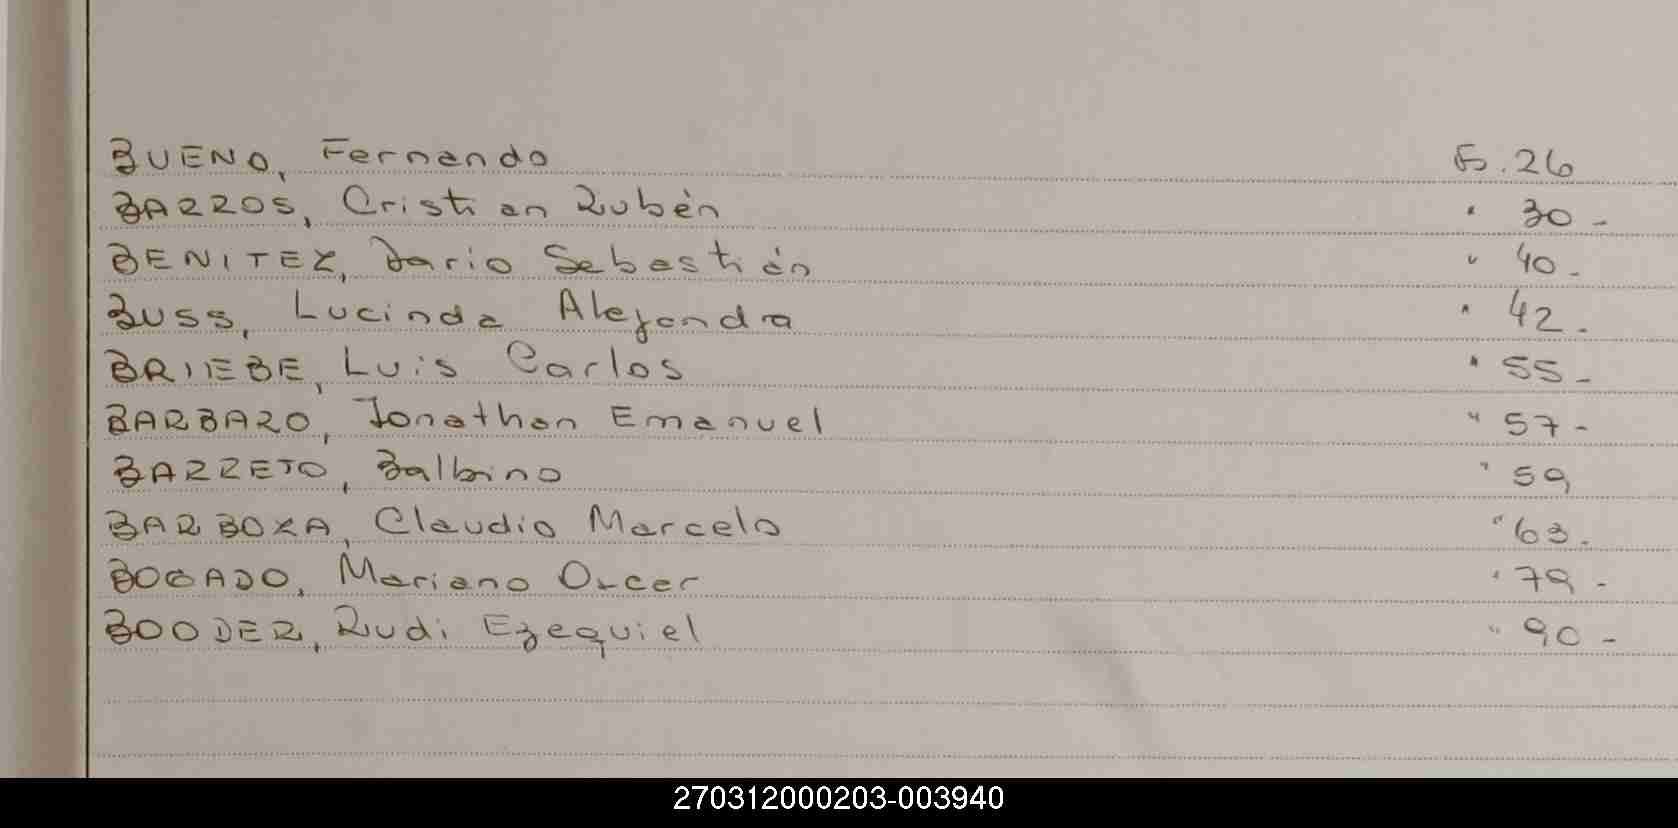 BUENO, Fernando Fs. 26
BARROS, Cristian Rubén " 30 -
BENITEZ, Dario Sebastián " 40 -
BUSS, Lucinda Alejandra " 42 -
BRIEBE, Luis Carlos " 55 -
BARBARO, Jonathan Emanuel " 57 -
BARRETO, Balbino " 59
BARBOZA, Claudio Marcelo " 63 -
BOGADO, Mariano " 79 -
BOODER, Rudi Ezequiel " 90 -
270312000203-003940